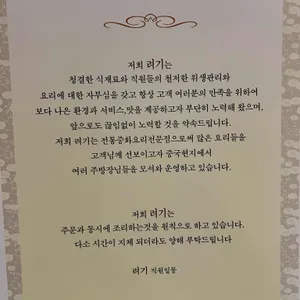 저희 려기는
청결한 식재료와 직원들의 철저한 위생관리와
요리에 대한 자부심을 갖고 항상 고객 여러분의 만족을 위하여
보다 나은 환경과 서비스,맛을 제공하고자 부단히 노력해 왔으며,
앞으로도 끊임없이 노력할 것을 약속드립니다.
저희 려기는 전통중화요리전문점으로써 많은 요리들을
고객님께 선보이고자 중국현지에서
여러 주방장님들을 모셔와 운영하고 있습니다.
저희 려기는
주문과 동시에 조리하는것을 원칙으로 하고 있습니다.
다소 시간이 지체 되더라도 양해 부탁드립니다
려기 직원일동